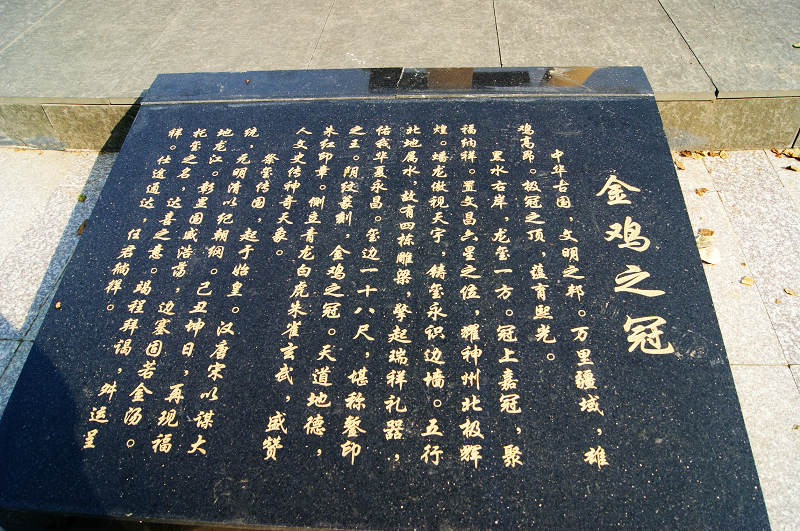 金鸡之冠
中华古国，文明之邦。万里疆域，雄
鸡高昂。极冠之顶，蕴育熙光。
黑水右岸，龙玺一方。冠上嘉冠，聚
福纳祥。置文昌六星之位，耀神州北极辉
煌。蟠龙傲视天宇，铸玺永识边墙。五行
北地属水，故有四栋雕梁，擎起瑞祥礼器，
佑我华夏永昌。玺边一十八尺，堪称玺印
之王。阴纹篆刻，金鸡之冠。天道地德，
朱红印章。侧立青龙白虎朱雀玄武，盛赞
人文史传神奇天象。
祭玺传国，起于始皇。汉唐宋以谋大
统，元明清以纪朝纲。己丑坤日，再现福
地龙江。彰显国威浩荡，边塞固若金汤。
托玺之名，达喜之意。竭程拜谒，时运呈
祥。仕途通达，任君徜祥。